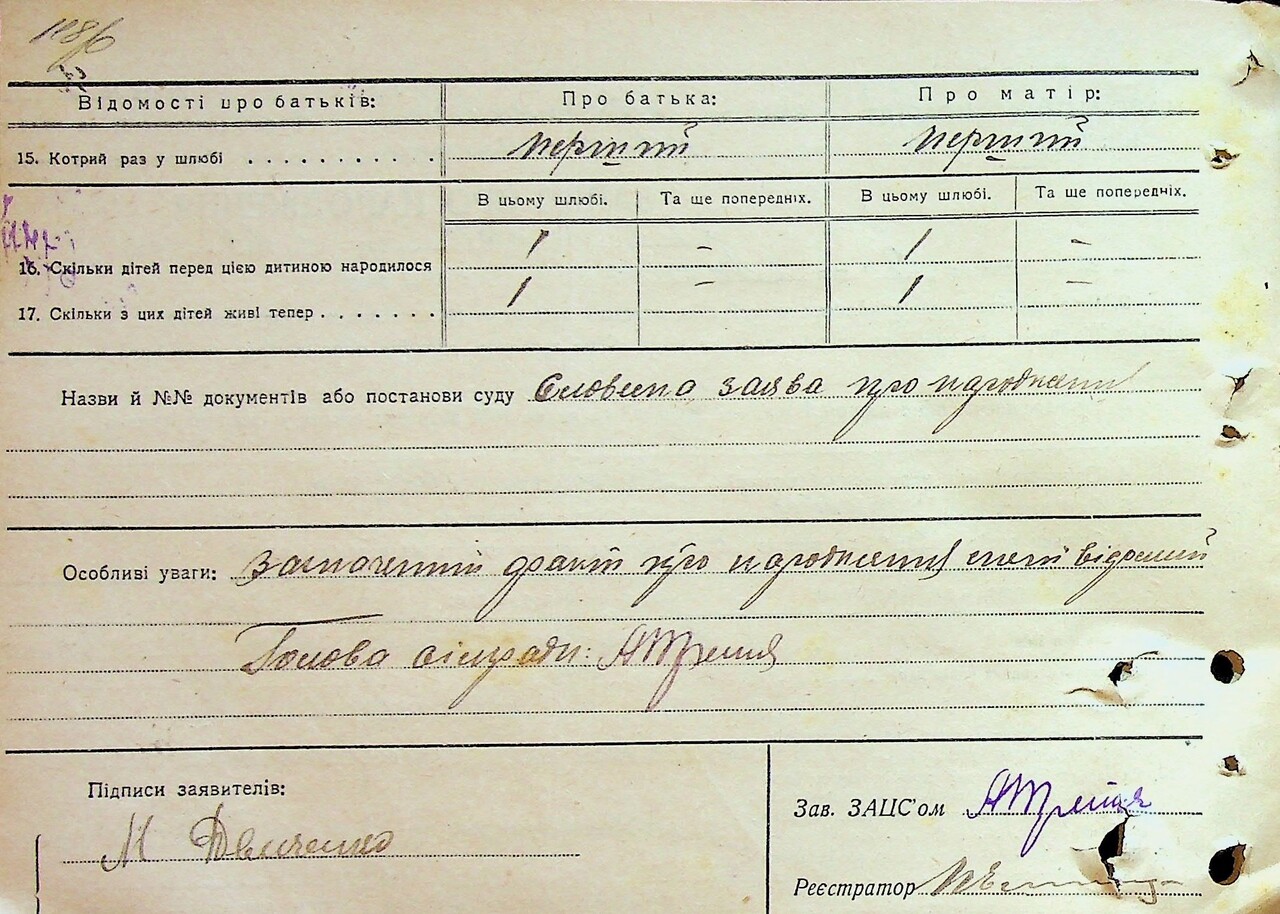 118/6
Відомості про батьків: Про батька: Про матір:
15. Котрий раз у шлюбі . . . . . . . . . . . перший перший
В цьому шлюбі. Та ще попередніх. В цьому шлюбі. Та ще попередніх.
16. Скільки дітей перед цією дитиною народилося 1 – 1 –
17. Скільки з цих дітей живі тепер . . . . . . . 1 – 1 –
Назви й №№ документів або постанови суду Словесна заява про народження
Особливі уваги: Зазначений факт про народження мені відомий
Голова сільради:
Підписи заявителів:
М
Зав. ЗАЦС'ом
Реєстратор